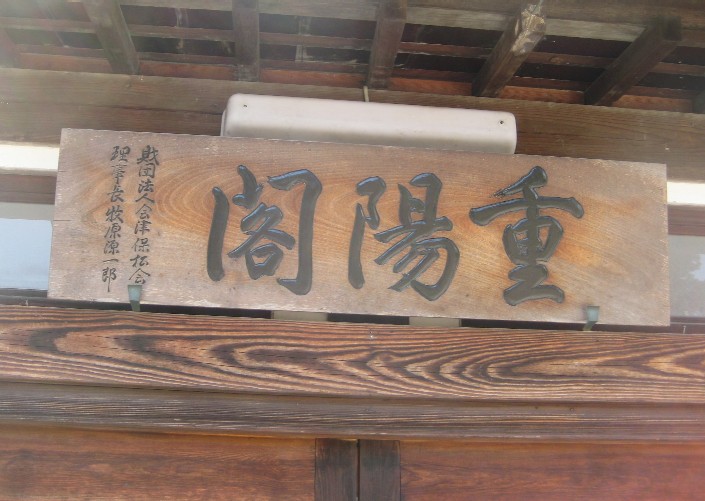 重陽閣
財団法人会津保松会
理事長牧原源一郎